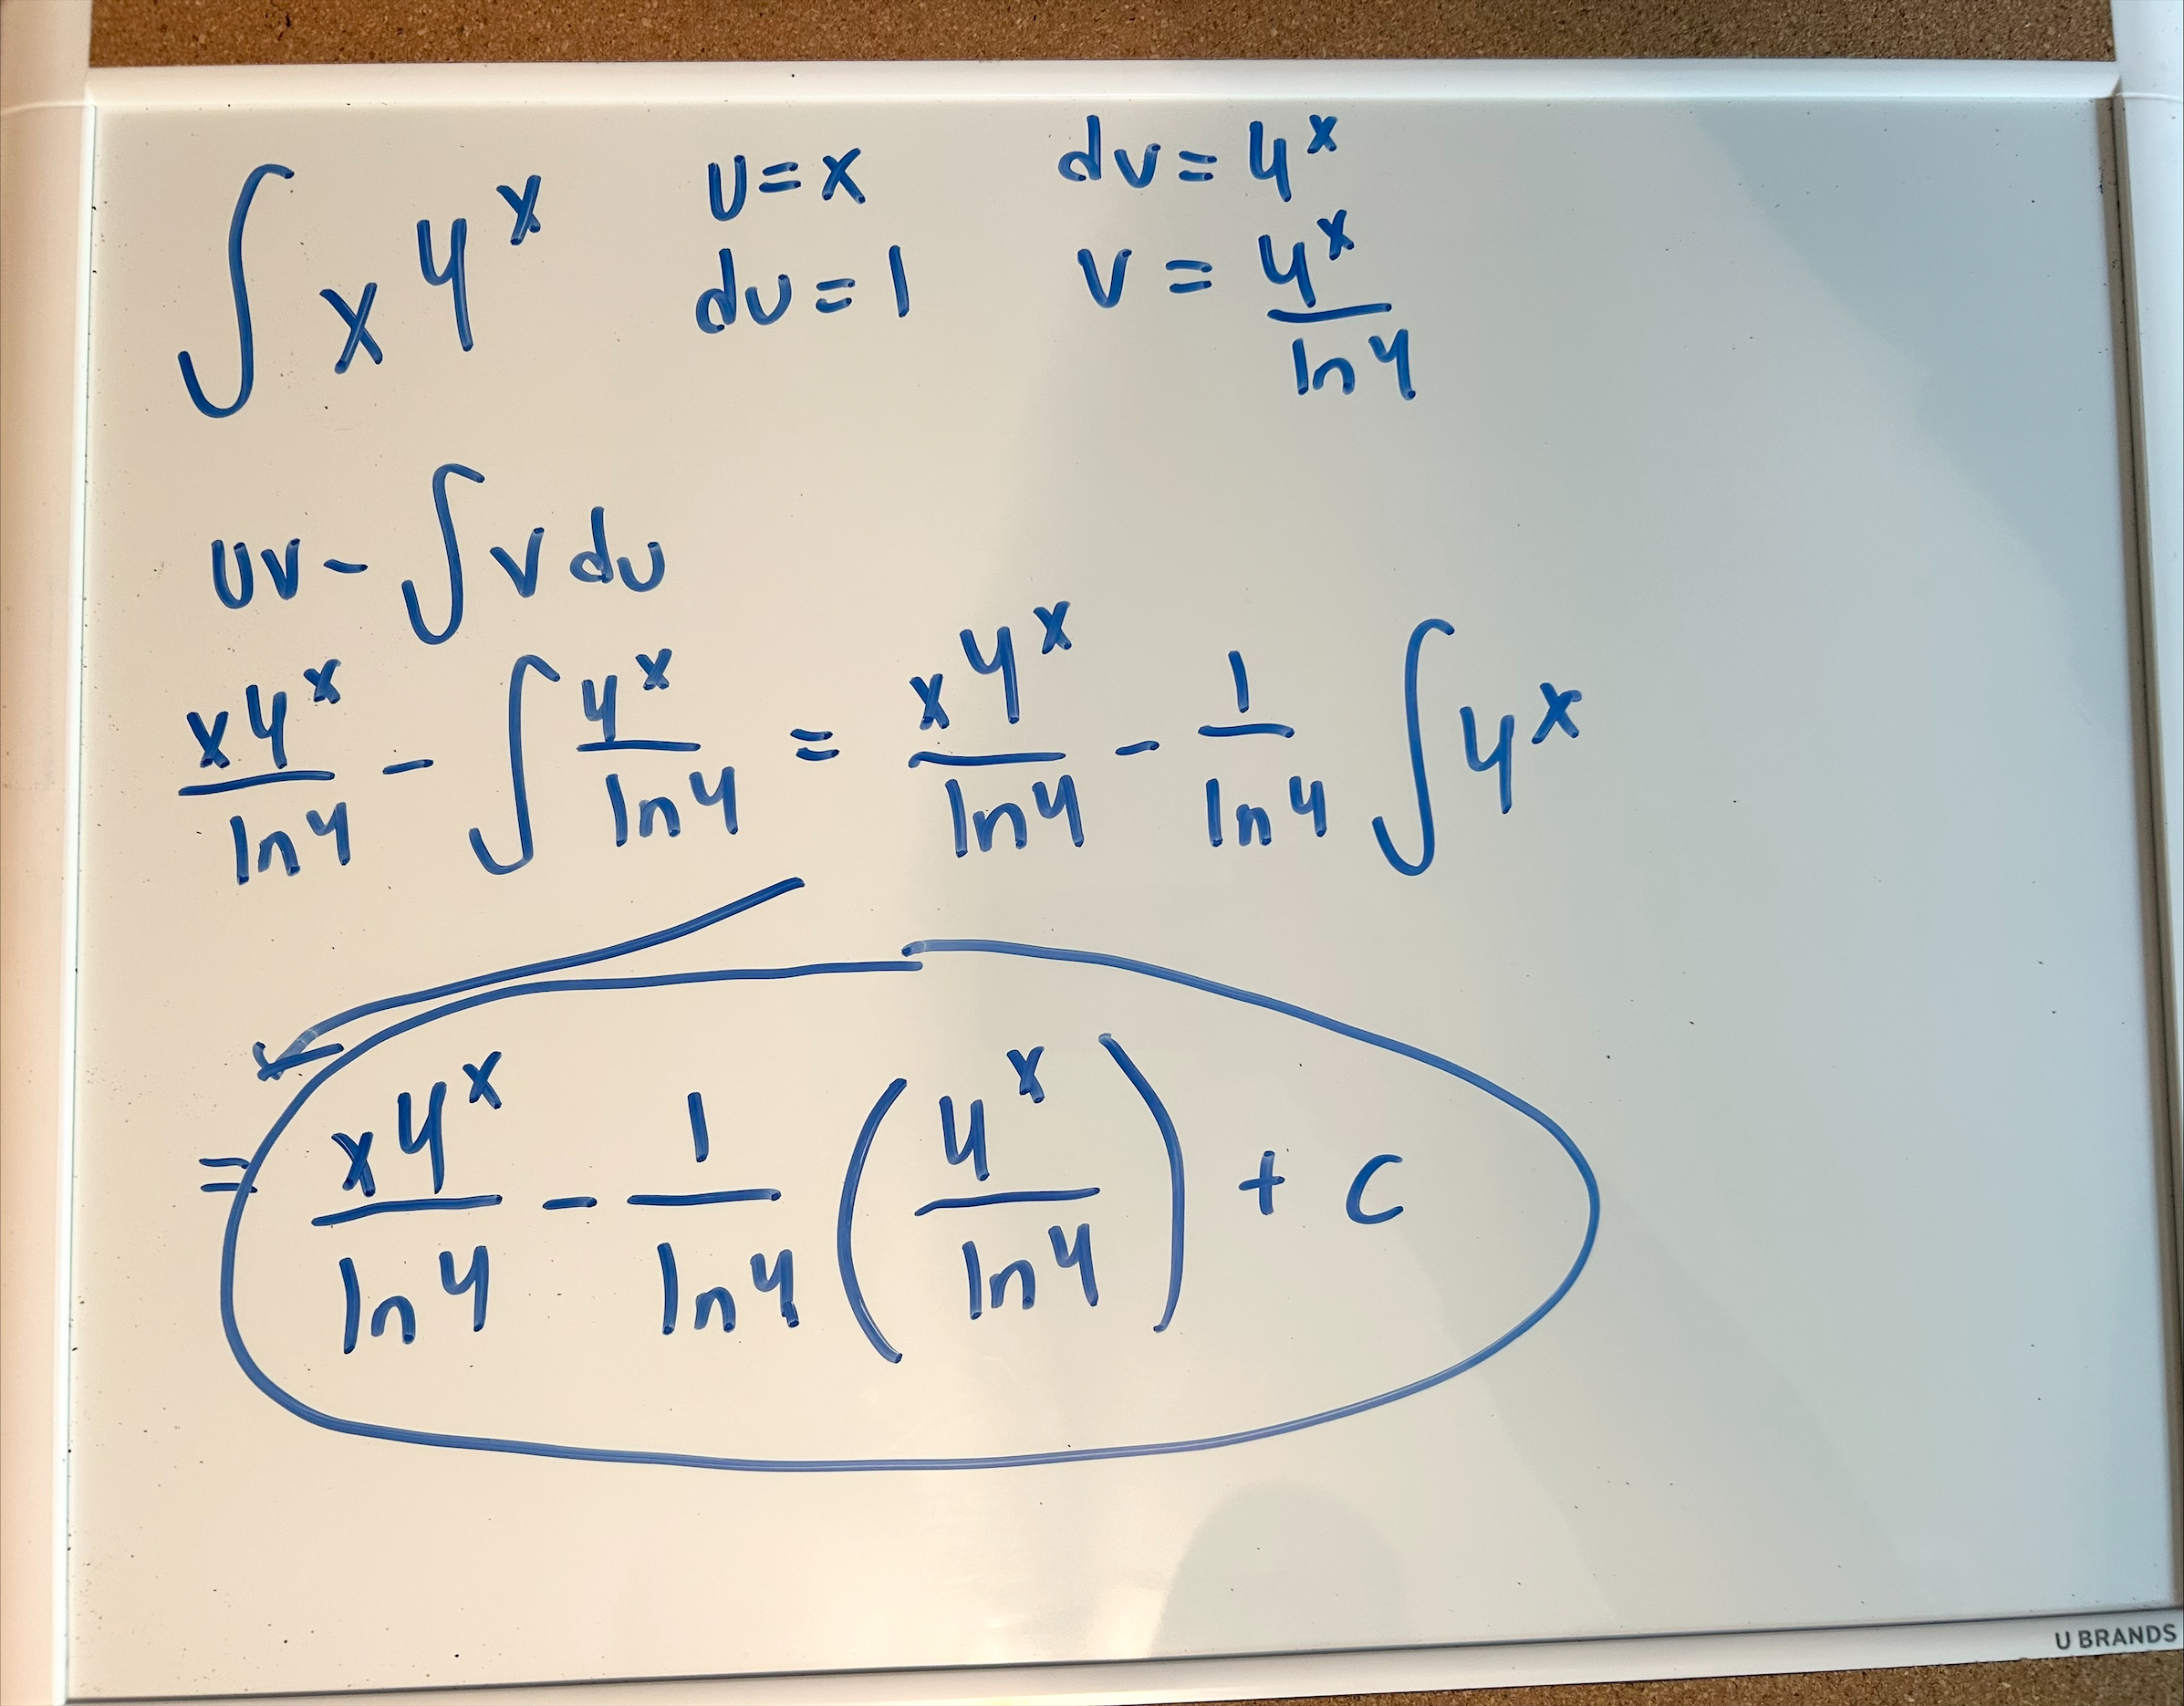 ∫ x 4^x    u = x    dv = 4^x
du = 1    v = 4^x / ln 4
uv - ∫ v du
x4^x / ln 4 - ∫ 4^x / ln 4 = x4^x / ln 4 - 1 / ln 4 ∫ 4^x
= x4^x / ln 4 - 1 / ln 4 (4^x / ln 4) + C
U BRANDS